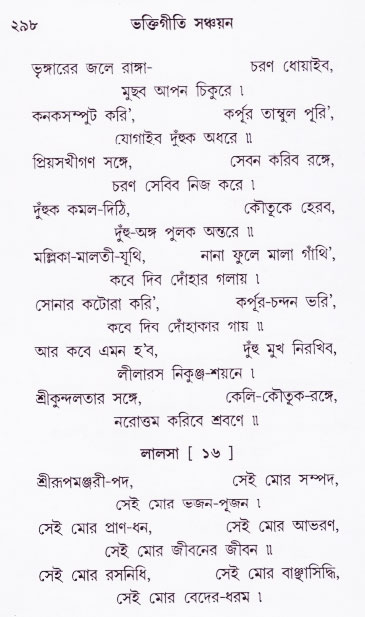 ২৯৮ ভক্তিগীতি সঞ্চয়ন
ভৃঙ্গারের জলে রাঙ্গা- চরণ ধোয়াইব,
মুছব আপন চিকুরে ।
কনকসম্পুট করি’, কর্পূর তাম্বুল পূরি’,
যোগাইব দুঁহুক অধরে ॥
প্রিয়সখীগণ সঙ্গে, সেবন করিব রঙ্গে,
চরণ সেবিব নিজ করে ।
দুঁহুক কমল-দিঠি, কৌতূকে হেরব,
দুঁহু-অঙ্গ পুলক অন্তরে ॥
মল্লিকা-মালতী-যূথি, নানা ফুলে মালা গাঁথি’,
কবে দিব দোঁহার গলায় ।
সোনার কটোরা করি’, কর্পূর-চন্দন ভরি’,
কবে দিব দোঁহাকার গায় ॥
আর কবে এমন হ’ব, দুঁহু মুখ নিরখিব,
লীলারস নিকুঞ্জ-শয়নে ।
শ্রীকুন্দলতার সঙ্গে, কেলি-কৌতূক-রঙ্গে,
নরোত্তম করিবে শ্রবণে ॥
লালসা [ ১৬ ]
শ্রীরূপমঞ্জরী-পদ, সেই মোর সম্পদ,
সেই মোর ভজন-পূজন ।
সেই মোর প্রাণ-ধন, সেই মোর আভরণ,
সেই মোর জীবনের জীবন ॥
সেই মোর রসনিধি, সেই মোর বাঞ্ছাসিদ্ধি,
সেই মোর বেদের-ধরম ।